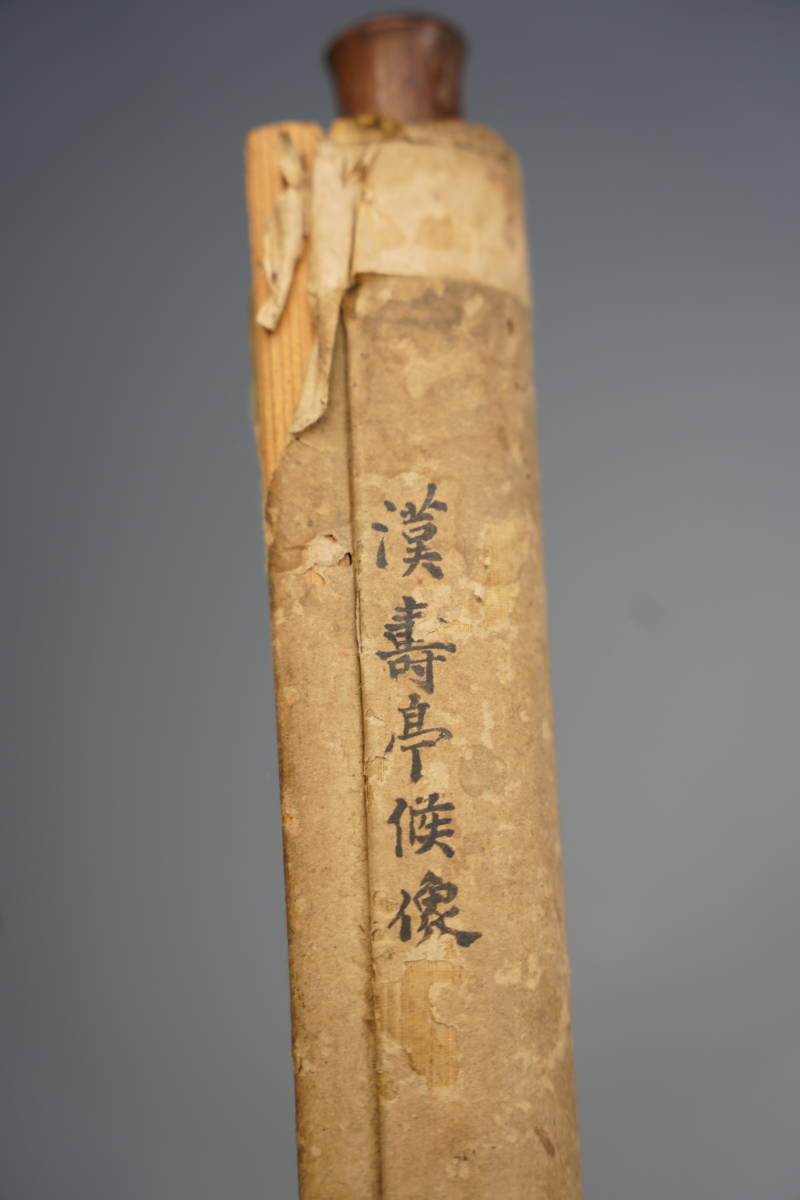 漢壽亭候像